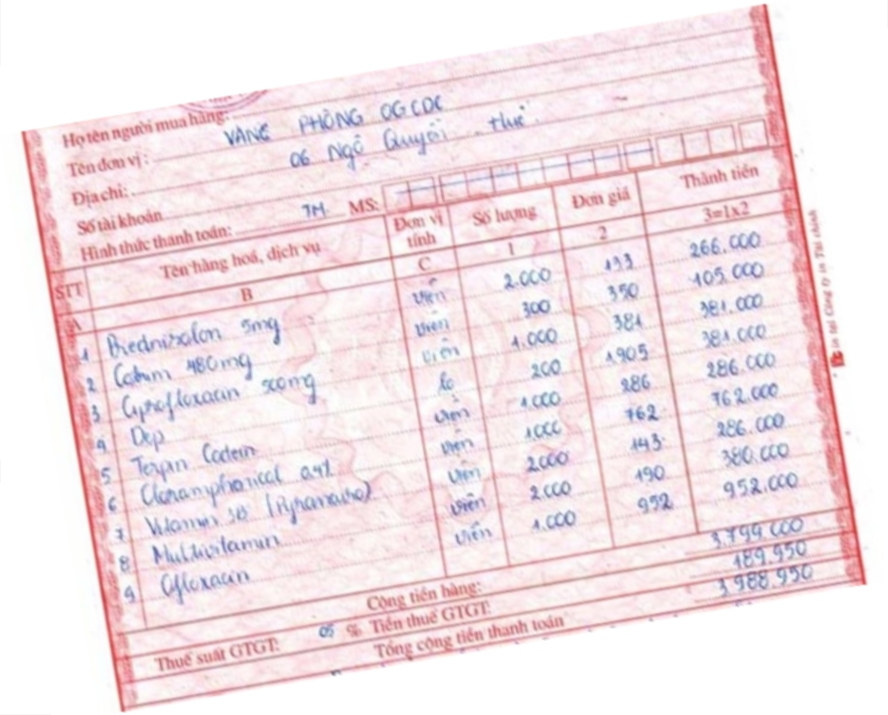 Họ tên người mua hàng:
Tên đơn vị: VĂNG PHÒNG OGCDC
Địa chỉ: 06 Ngô Quyền Huế
Số tài khoản
Hình thức thanh toán: TM MS:
STT Tên hàng hoá, dịch vụ Đơn vị tính Số lượng Đơn giá Thành tiền
A B C 1 2 3=1x2
1 Prednisolon 5mg viên 2.000 133 266.000
2 480mg viên 300 350 105.000
3 Ciprofloxacin 500mg viên 1.000 381 381.000
4 Dep lo 200 1.905 381.000
5 Terpin Codein viên 1.000 286 286.000
6 viên 1.000 762 762.000
7 Vitamin viên 2.000 143 286.000
8 Multivitamin viên 2.000 190 380.000
9 Ofloxacin viên 1.000 952 952.000
Cộng tiền hàng: 3.799.000
Thuế suất GTGT: 05 % Tiền thuế GTGT: 189.950
Tổng cộng tiền thanh toán 3.988.950